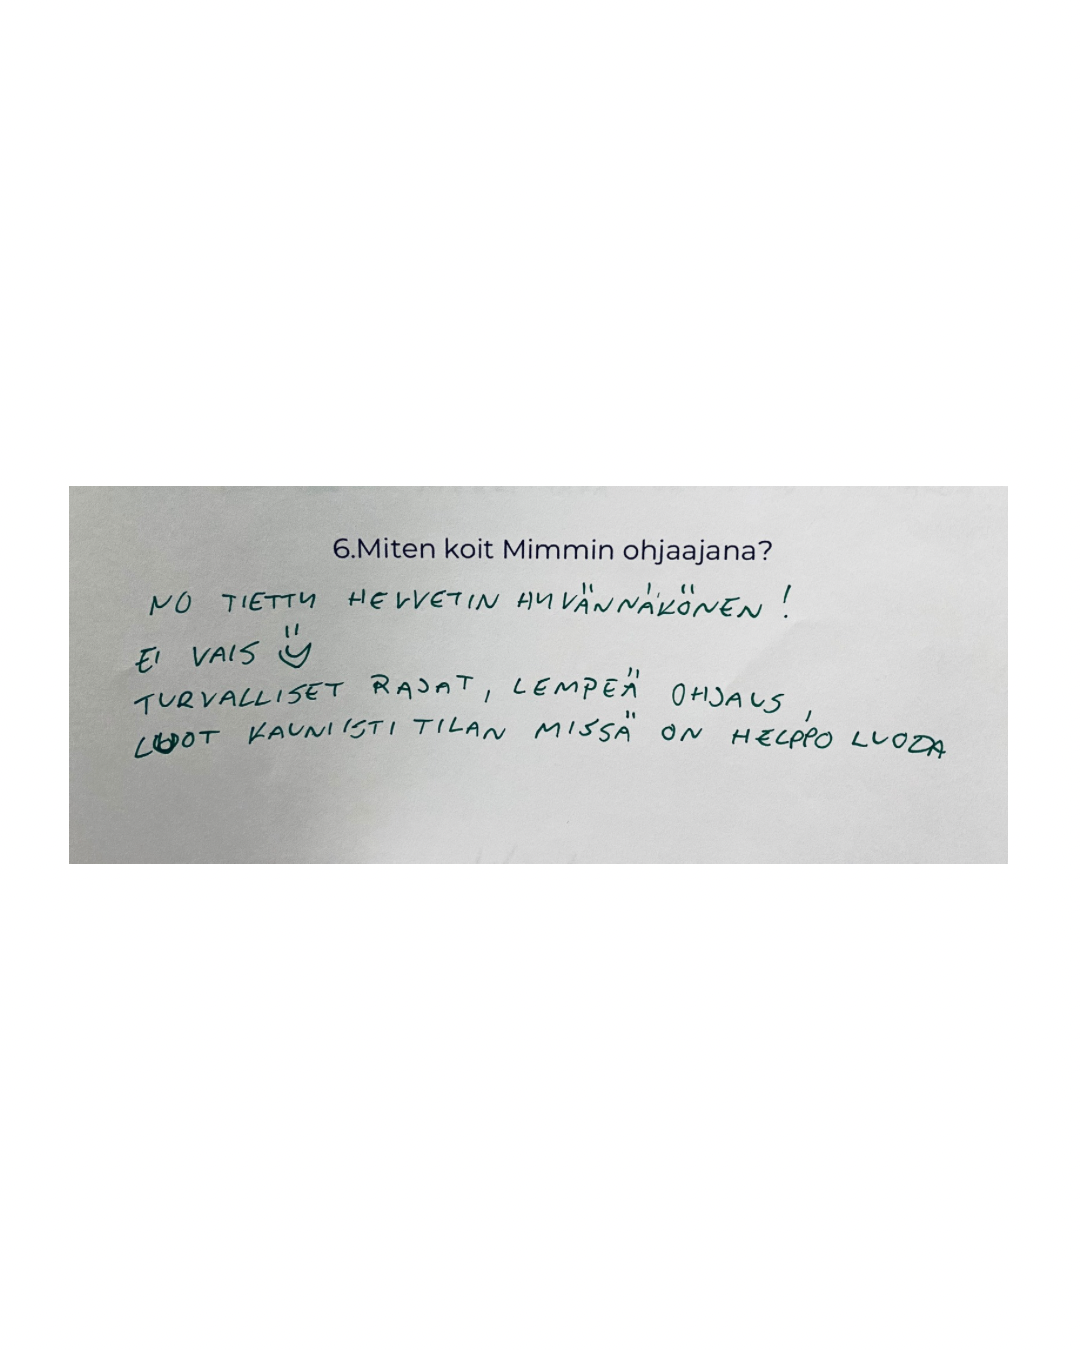 6.Miten koit Mimmin ohjaajana?
NO TIETTY HELVETIN HYVÄNNÄKÖNEN !
EI VAIS
TURVALLISET RAJAT, LEMPEÄ OHJAUS,
LUOT KAUNIISTI TILAN MISSÄ ON HELPPO LUODA